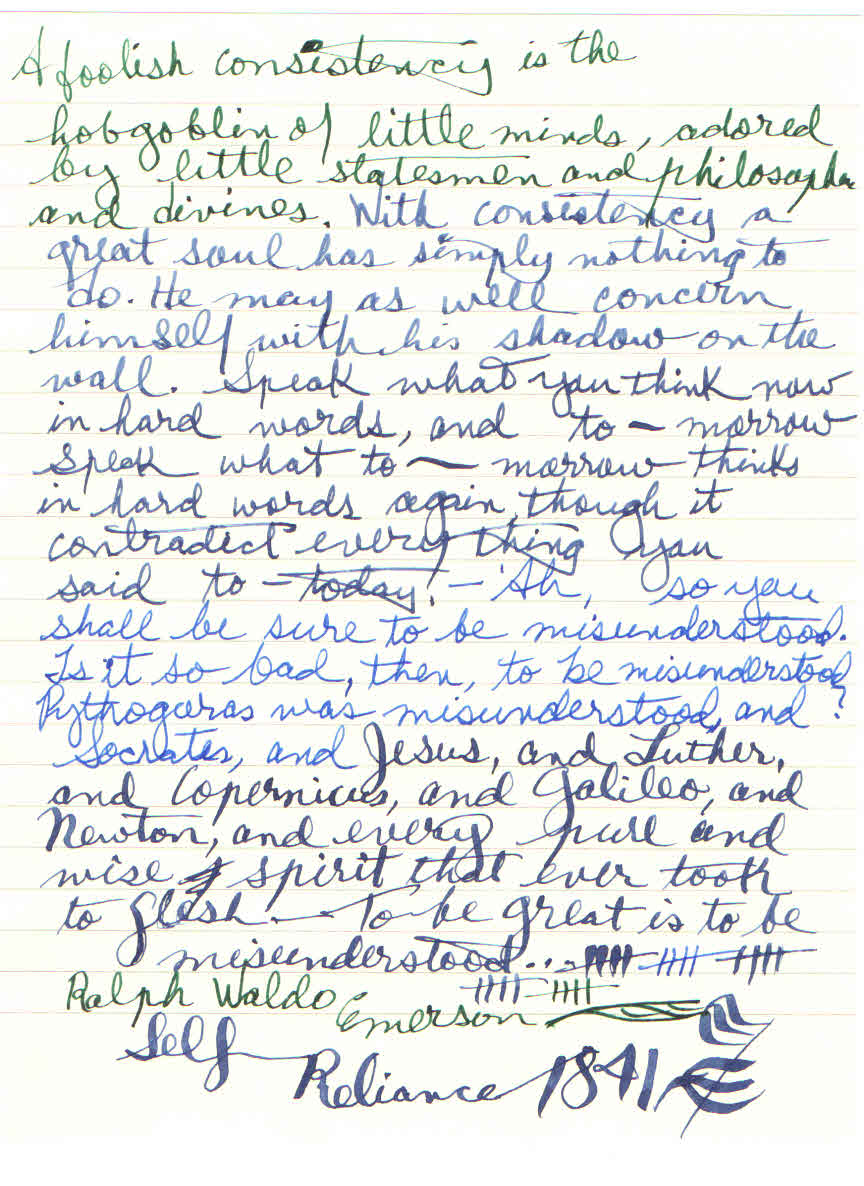 A foolish consistency is the
hobgoblin of little minds, adored
by little statesmen and philosophe
and divines. With consistency a
great soul has simply nothing to
do. He may as well concern
himself with his shadow on the
wall. Speak what you think now
in hard words, and to - morrow
speak what to - morrow thinks
in hard words again, though it
contradict every thing you
said to - today. - 'Ah, so you
shall be sure to be misunderstood.
Is it so bad, then, to be misunderstood?
Pythogoras was misunderstood, and
Socrates, and Jesus, and Luther,
and Copernicus, and Galileo, and
Newton, and every pure and
wise spirit that ever took
to flesh. To be great is to be
misunderstood...
Ralph Waldo Emerson
Self
Reliance 1841